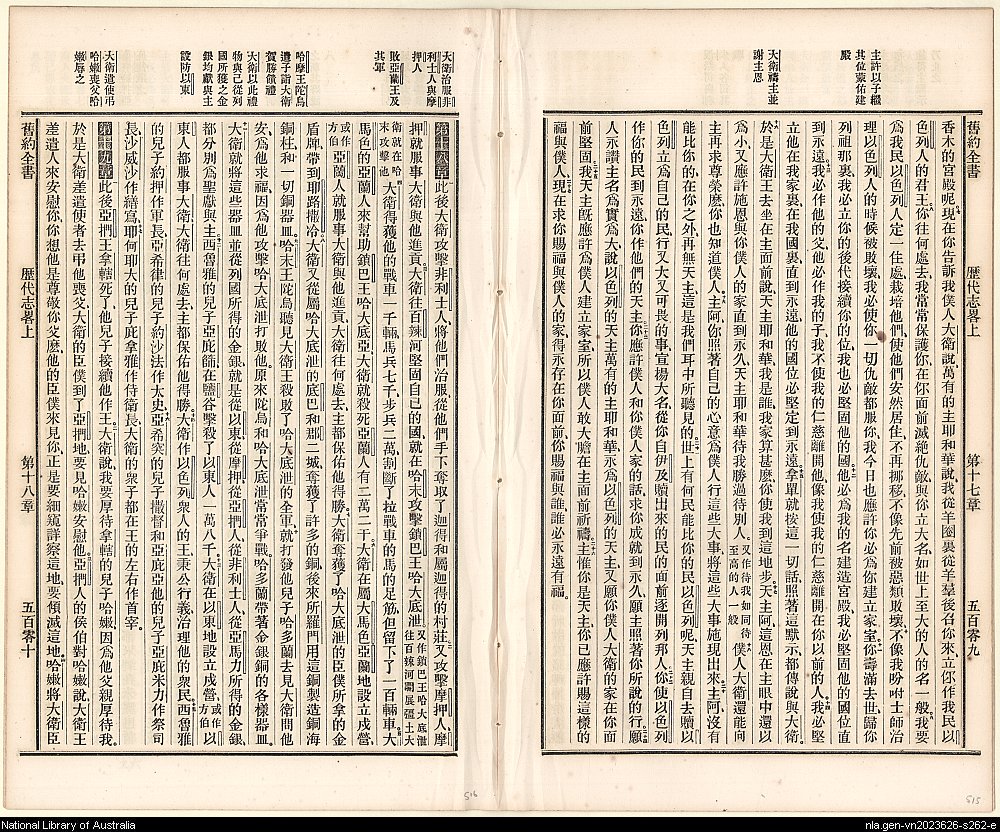 主許以子繼
其位蒙佑建
殿
大衛禱主並
謝主恩
舊約全書
歷代志畧上
第十七章
五百零九
香木的宮殿呢現在你告訴我僕人大衛說萬有的主耶和華說我從羊圈裏從羊羣後召你來立你作我民以
色列人的君王你往何處去我常常保護你在你面前滅絕仇敵與你立大名如世上至大的人的名一般我要
爲我民以色列人定一住處栽培他們使他們安然居住不再挪移不像先前被惡類敗壞不像我吩咐士師治
理以色列人的時候被敗壞我必使你一切仇敵都服你我今日也應許你必爲你建立家室你壽滿去世歸你
列祖那裏我必立你的後代接續你的位我也必堅固他的國他必爲我的名建造宮殿我必堅固他的國位直
到永遠我必作他的父他必作我的子我不使我的仁慈離開他像我使我的仁慈離開在你以前的人我必堅
立他在我家裏在我國裏直到永遠他的國位必堅定到永遠拿單就按這一切話照著這默示都傳說與大衛
於是大衛王去坐在主面前說天主耶和華我是誰我家算甚麼你使我到這地步天主阿這恩在主眼中還以
爲小又應許施恩與你僕人的家直到永久天主耶和華待我勝過待別人又作待我如同待至高的人一般僕人大衛還能向
主再求尊榮麼你也知道僕人主阿你照著自己的心意爲僕人行這些大事將這些大事施現出來主阿沒有
能比你的在你之外再無天主這是我們耳中所聽見的世上有何民能比你的民以色列呢天主親自去贖以
色列立爲自己的民行又大又可畏的事宣揚大名從你自伊及贖出來的民的面前逐開列邦人你使以色列
作你的民到永遠你作他們的天主你應許僕人和你僕人家的話求你成就到永久願主照著你所說的行願
人示讚主名爲實爲大說以色列的天主萬有的主耶和華永爲以色列的天主又願你僕人大衛的家在你面
前堅固我天主旣應許爲僕人建立家室所以僕人敢大膽在主面前祈禱主惟你是天主你已應許賜這樣的
福與僕人現在求你賜福與僕人的家得永存在你面前你賜福與誰誰必永遠有福
大衛治服非
利士人與摩
押人
敗亞蘭王及
其軍
哈摩王陀烏
遣子詣大衛
賀勝餽禮
大衛以此禮
物與己從列
國所獲之金
銀均獻與主
設防以東
大衛遣使弔
哈嫩喪父哈
嫩辱之
第十八章此後大衛攻擊非利士人將他們治服從他們手下奪取了迦得和屬迦得的村莊又攻擊摩押人摩
押就服事大衛與他進貢大衛往百辣河堅固自己的國就在哈末攻擊鎖巴王哈大底泄又作鎖巴王哈大底泄往百辣河開展疆土大
衛就在哈末攻擊他大衛得獲他的戰車一千輛馬兵七千步兵二萬割斷了拉戰車的馬的足筋但留下了一百輛車大
馬色的亞蘭人來幫助鎖巴王哈大底亞大衛就殺死亞蘭人有二萬二千大衛在屬大馬色亞蘭地設立戍營
或作方伯亞蘭人就服事大衛與他進貢大衛往何處去主都保佑他得勝大衛奪獲了哈大底泄的臣僕所拿的金
盾牌帶到耶路撒冷大衛又從屬哈大底泄的底巴和郡二城奪獲了許多的銅後來所羅門用這銅製造銅海
銅柱和一切銅器皿哈末王陀烏聽見大衛王殺敗了哈大底泄的全軍就打發他兒子哈多蘭去見大衛問他
安爲他求福因爲他攻擊哈大底泄打敗他原來陀烏和哈大底泄常常爭戰哈多蘭帶著金銀銅的各樣器皿
大衛就將這些器皿並從列國所得的金銀就是從以東從摩押從亞捫人從非利士人從亞馬力所得的金銀
都分別爲聖獻與主西魯雅的兒子亞庇篩在鹽谷擊殺了以東人一萬八千大衛在以東地設立戍營或作方伯以
東人都服事大衛大衛往何處去主都保佑他得勝大衛作以色列衆人的王秉公行義治理他的衆民西魯雅
的兒子約押作軍長亞希律的兒子約沙法作太史亞希突的兒子撒督和亞庇亞他的兒子亞庇米力作祭司
長沙威沙作繕寫耶何耶大的兒子庇拿雅作侍衛長大衛的衆子都在王的左右作首宰
第十九章此後亞捫王拿轄死了他兒子接續他作王大衛說我要厚待拿轄的兒子哈嫩因爲他父親厚待我
於是大衛差遣使者去弔他喪父大衛的臣僕到了亞捫地要見哈嫩安慰他亞捫人的侯伯對哈嫩說大衛王
差遣人來安慰你你想他是尊敬你父麼他的臣僕來見你正是要細窺詳察這地要傾滅這地哈嫩將大衛臣
舊約全書
歷代志畧上
第十八章
五百零十
516
515
National Library of Australia
nla.gen-vn2023626-s262-e